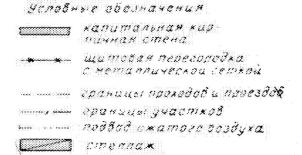 Условные обозначения
капитальная кир-
пичная стена
щитовая перегородка
с металлической сеткой
границы проходов и проездов
границы участков
подвод сжатого воздуха
стеллаж